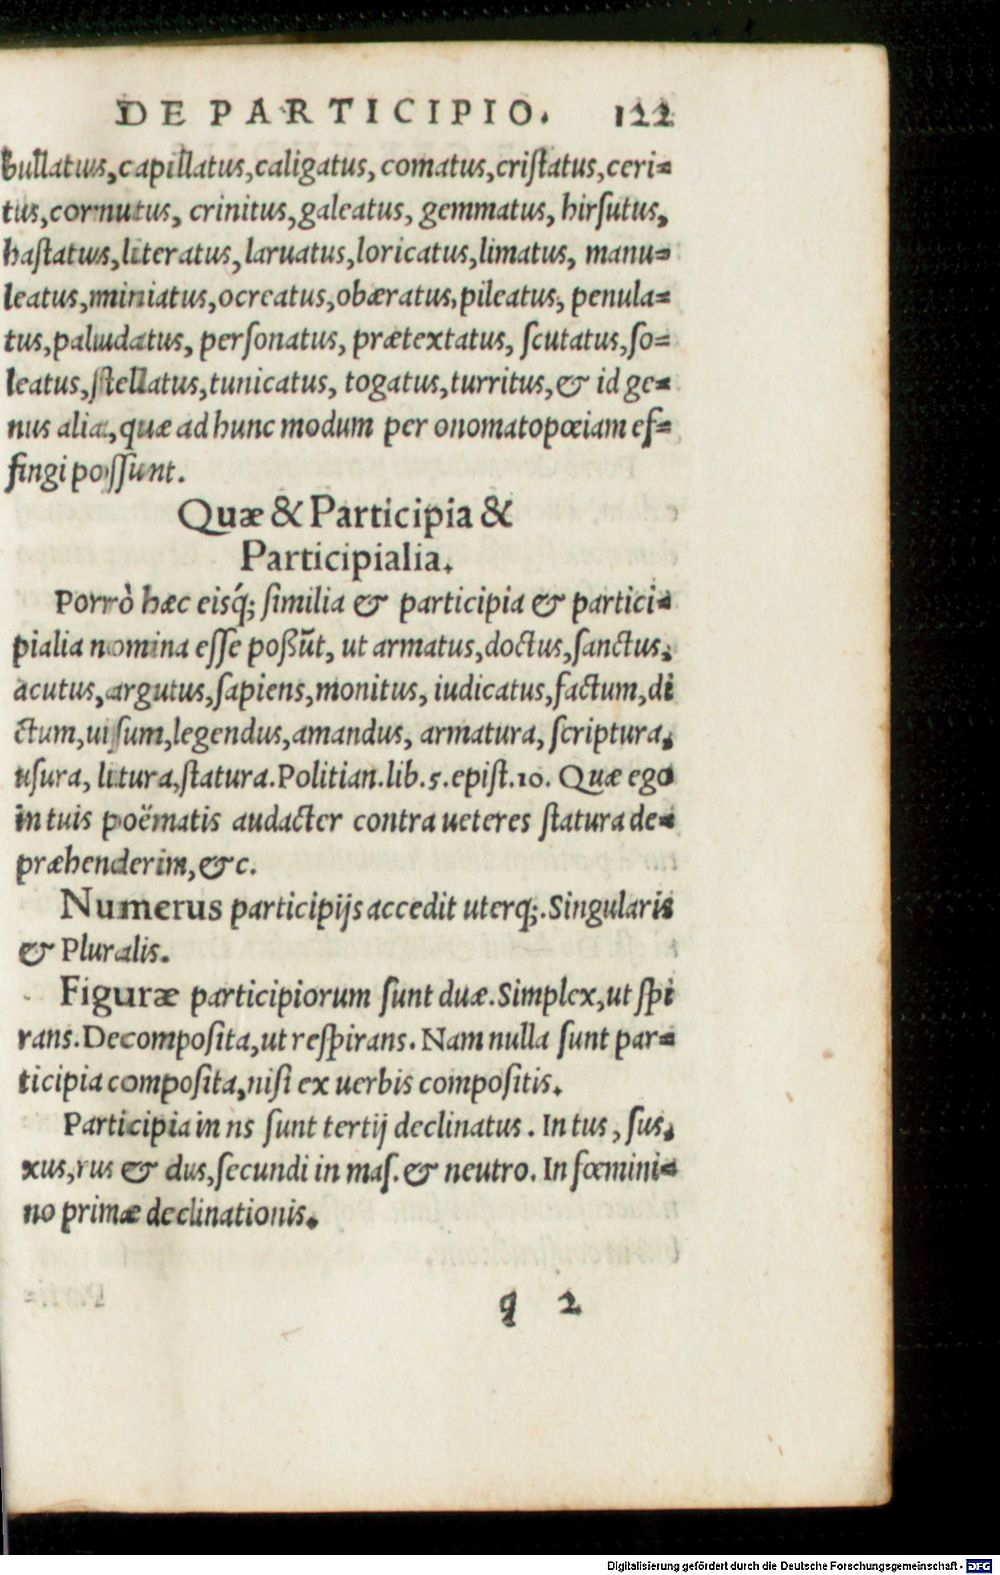 DE PARTICIPIO. 122
bullatus,capillatus,caligatus, comatus,criſtatus,ceri-
tus,cornutus, crinitus,galeatus, gemmatus, hirſutus,
haſtatus,literatus,laruatus,loricatus,limatus, manu-
leatus,miniatus,ocreatus,obæratus,pileatus, penula-
tus,paludatus, perſonatus, prætextatus, ſcutatus,ſo-
leatus,ſtellatus,tunicatus, togatus,turritus,& id ge-
nus alia,quæ ad hunc modum per onomatopœiam ef-
fingi poſſunt.
Quæ & Participia &
Participialia.
Porrò hæc eisq́; ſimilia & participia & partici-
pialia nomina eſſe poßūt, ut armatus,doctus,ſanctus,
acutus,argutus,ſapiens,monitus, iudicatus,factum,di
ctum,uiſum,legendus,amandus, armatura, ſcriptura,
uſura, litura,ſtatura.Politian.lib.5.epiſt.10. Quæ ego
in tuis poëmatis audacter contra ueteres ſtatura de-
præhenderim,&c.
Numerus participijs accedit uterq;.Singularis
& Pluralis.
Figuræ participiorum ſunt duæ.Simplex,ut ſpi
rans.Decompoſita,ut reſpirans. Nam nulla ſunt par-
ticipia compoſita,niſi ex uerbis compoſitis.
Participia in ns ſunt tertij declinatus. In tus, ſus,
xus,rus & dus,ſecundi in maſ.& neutro. In fœmini-
no primæ declinationis.
q 2
Digitalisierung gefördert durch die Deutsche Forschungsgemeinschaft - DFG